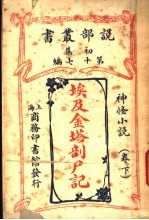 說部叢書
初集
第十七編
神怪小說
（卷下）
埃及金塔剖尸記
上海
商務印書館發行